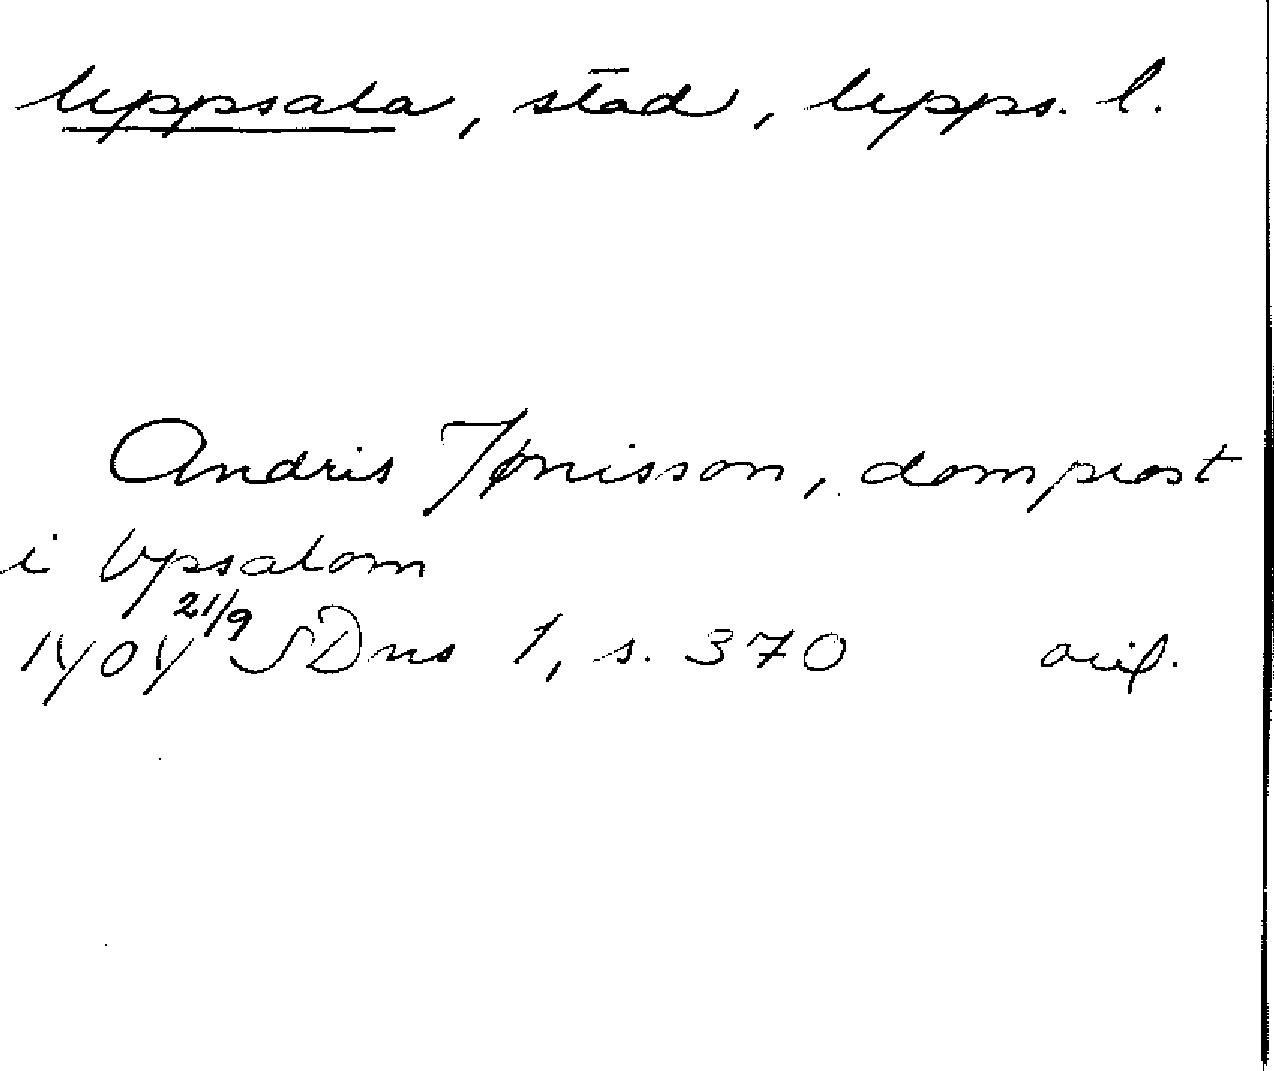 Uppsala, stad, Upps. l.
Andris Jønisson, domprost
i Vpsalom
1404 21/9 SDns 1, s. 370 orig.